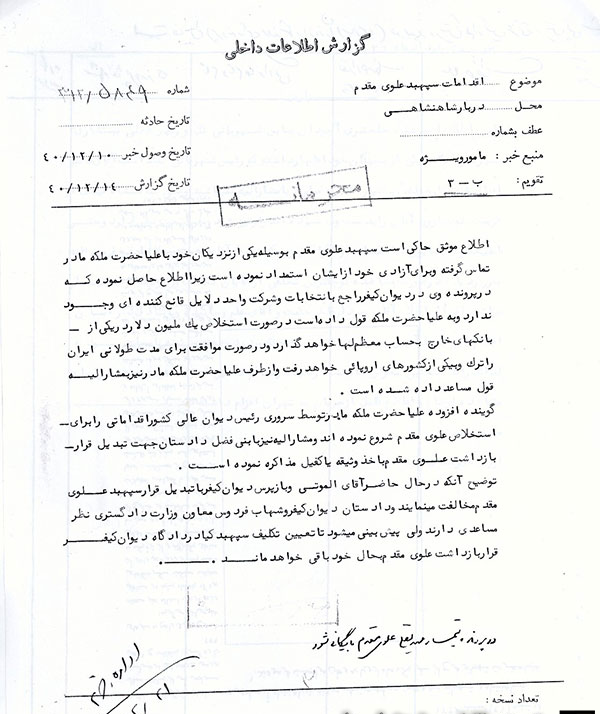 گزارش اطلاعات داخلی
موضوع ..... اقدامات سپهبد علوی مقدم
محل ..... دربار شاهنشاهی
عطف بشماره
منبع خبر : مامور ویژه
تقویم : ب - ۳
شماره
تاریخ حادثه
تاریخ وصول خبر ۴۰/۱۲/۱۰
تاریخ گزارش ۴۰/۱۲/۱۴
محرمانه
اطلاع موثق حاکی است سپهبد علوی مقدم بوسیله یکی از نزدیکان خود با علیاحضرت ملکه مادر
تماس گرفته و برای آزادی خود از ایشان استمداد نموده است زیرا اطلاع حاصل نموده که
در پرونده وی در دیوان کیفر راجع بانتخابات و شرکت واحد دلایل قانع کننده ای وجود
ندارد و به علیاحضرت ملکه قول داده است در صورت استخلاص یک ملیون دلار در یکی از -
بانکهای خارج بحساب معظم لها خواهد گذارد و در صورت موافقت برای مدت طولانی ایران
را ترک و بیکی از کشورهای اروپائی خواهد رفت و از طرف علیاحضرت ملکه مادر نیز بمشارالیه
قول مساعد داده شده است .
گوینده افزوده علیاحضرت ملکه مادر توسط سروری رئیس دیوان عالی کشور اقداماتی را برای -
استخلاص علوی مقدم شروع نموده اند و مشارالیه نیز با بنی فضل دادستان جهت تبدیل قرار -
بازداشت علوی مقدم باخذ وثیقه یا کفیل مذاکره نموده است .
توضیح آنکه در حال حاضر آقای الموتی و بازپرس دیوان کیفر با تبدیل قرار سپهبد علوی
مقدم مخالفت مینمایند و دادستان دیوان کیفر و شهاب فردوس معاون وزارت دادگستری نظر
مساعدی دارند ولی پیش بینی میشود تا تعیین تکلیف سپهبد کیا در دادگاه دیوان کیفر
قرار بازداشت علوی مقدم بحال خود باقی خواهد ماند .
در پرونده تیمسار علوی مقدم بایگانی شود
تعداد نسخه :